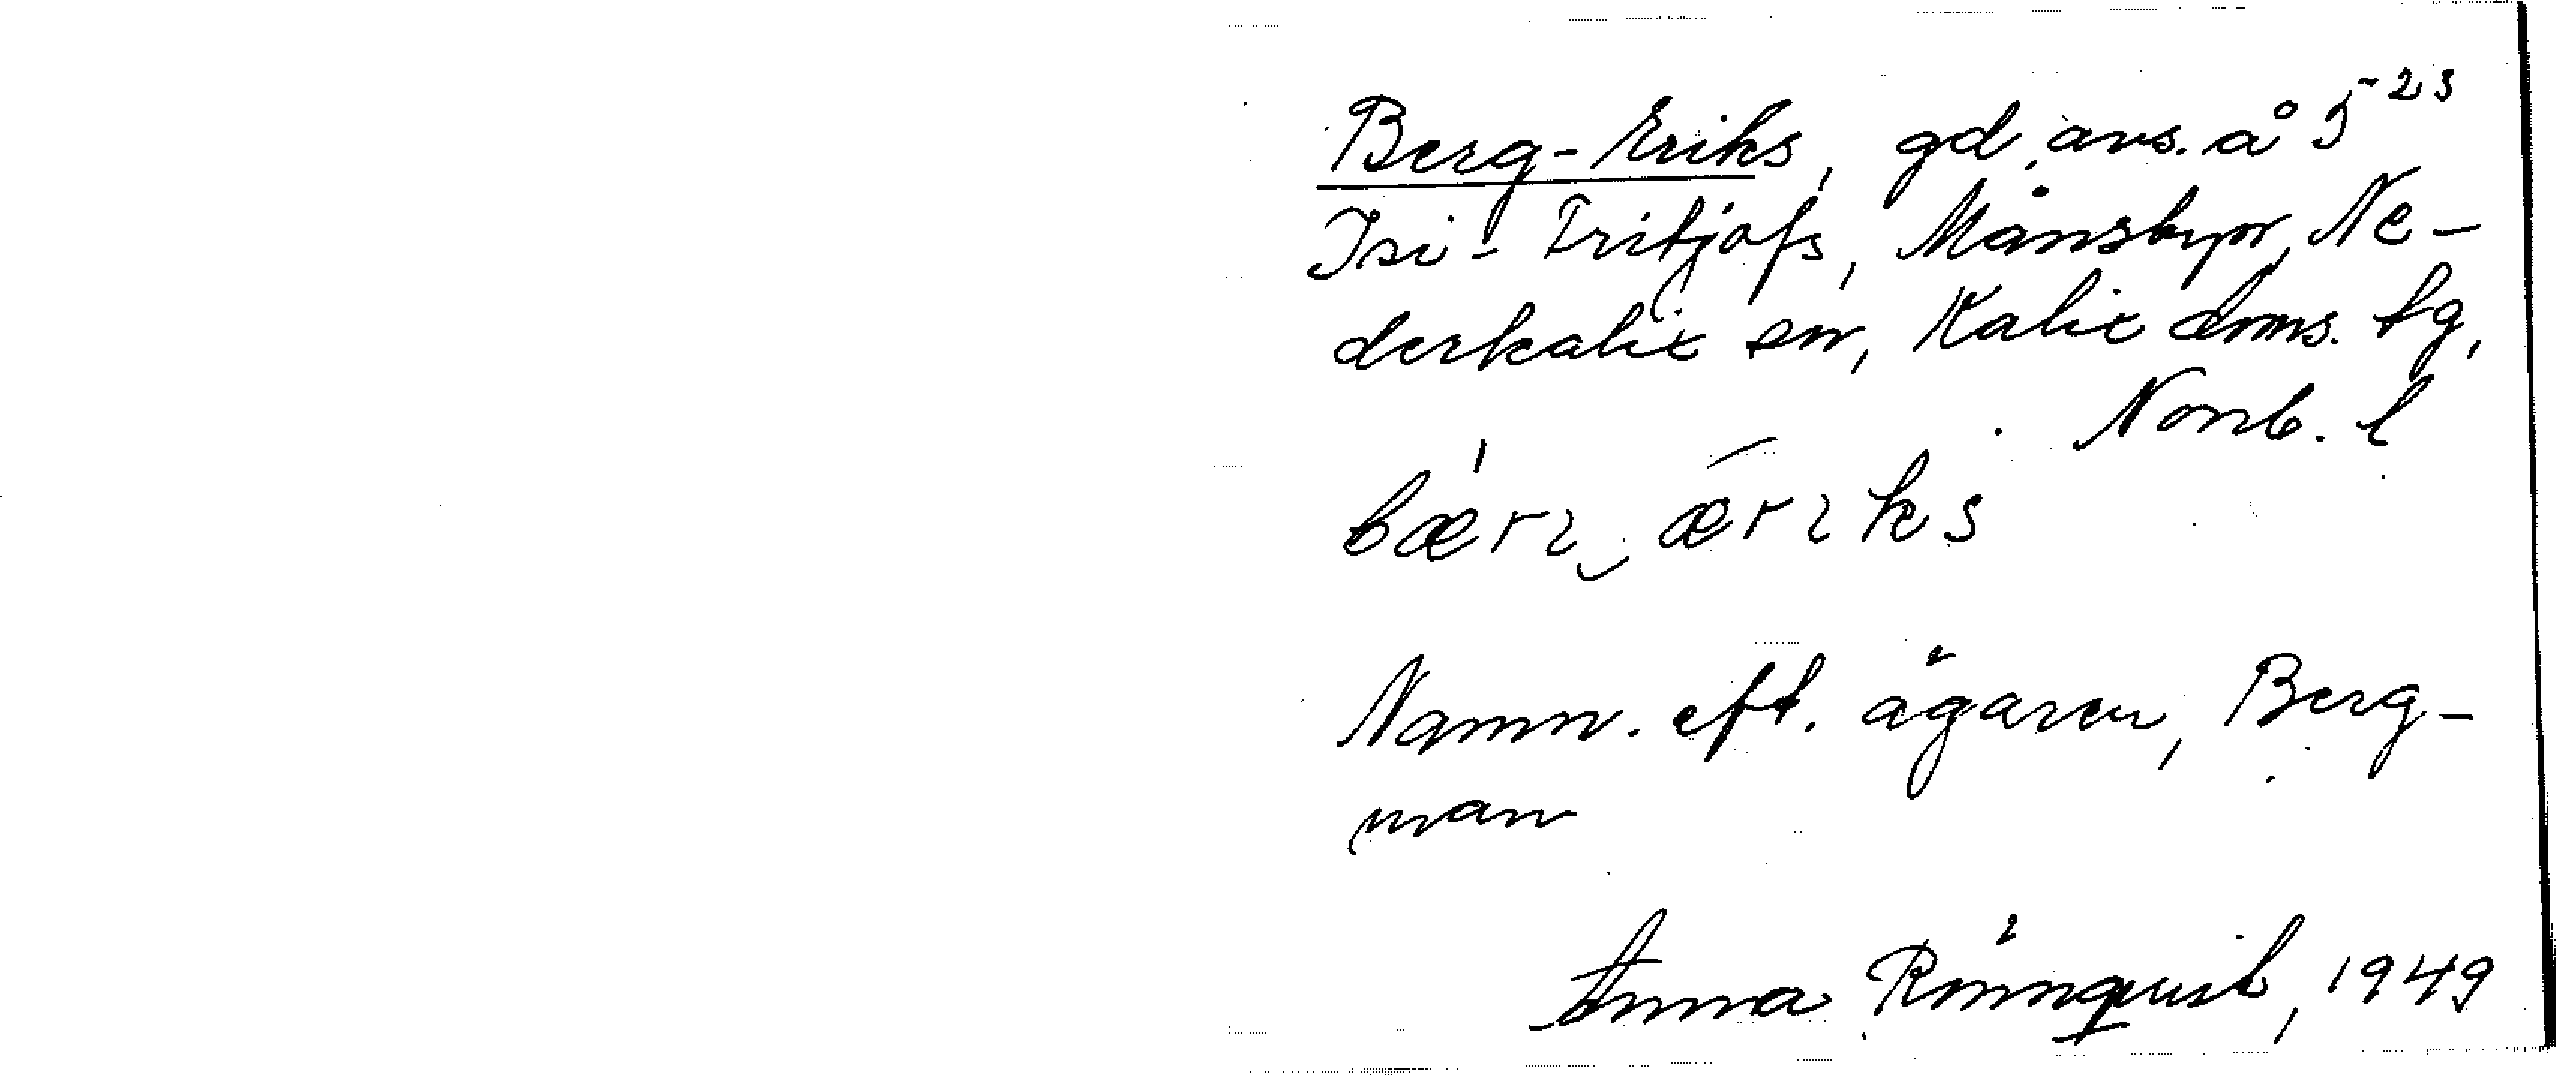 Berg-Eriks, gd, avs. å 5⁻²³
Isi-Fritjofs, Månsbyn, Ne-
derkalix sn, Kalix doms. tg,
Norrb. l
Namn. eft. ägaren, Berg-
man
Anna Rönnquist, 1949